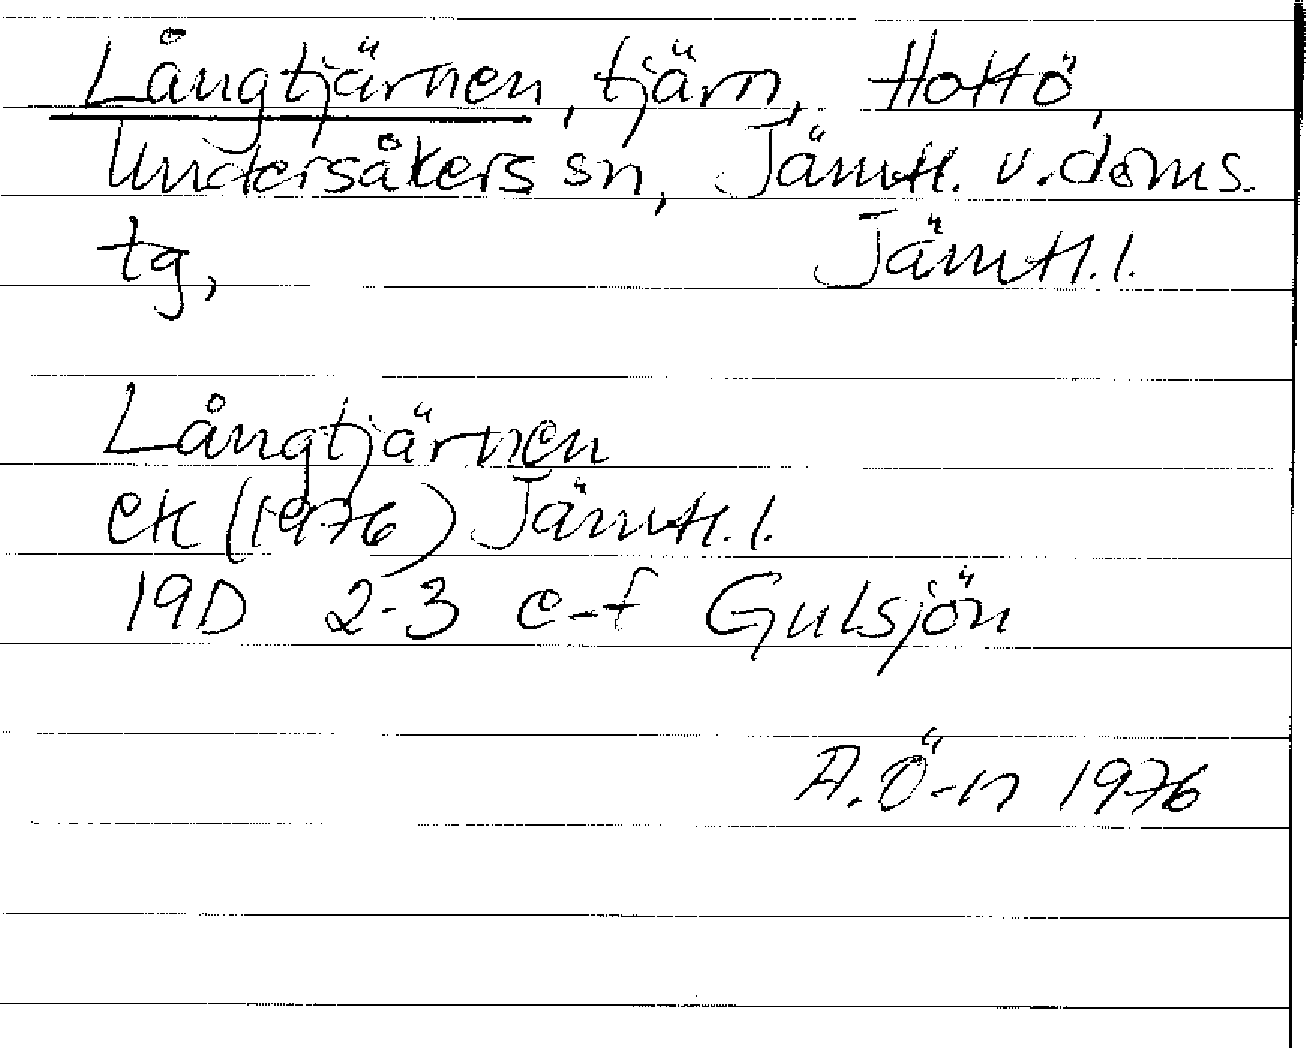 Långtjärnen, tjärn, Hottö,
Undersåkers sn, Jämtl. v. doms.
tg, Jämtl. l.
Långtjärnen
ek (1976) Jämtl. l.
19D 2-3 e-f Gulsjön
A. Ö-n 1976